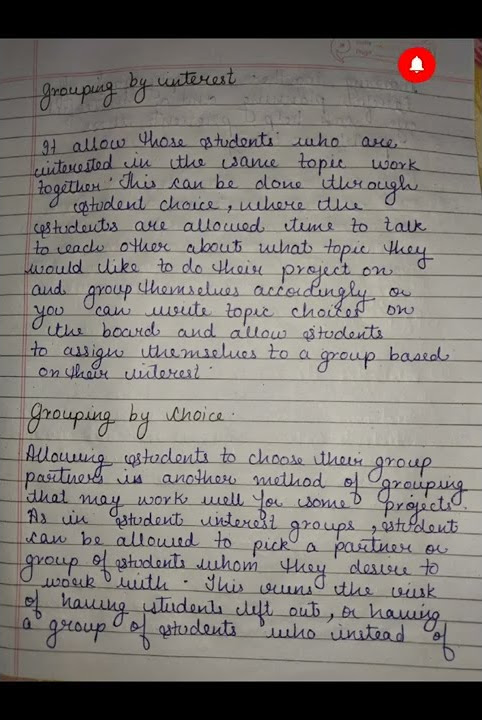 Grouping by interest.
It allow those students who are
interested in the same topic work
together. This can be done through
student choice, where the
students are allowed time to talk
to each other about what topic they
would like to do their project on
and group themselves accordingly or
you can write topic choices on
the board and allow students
to assign themselves to a group based
on their interest.
Grouping by choice.
Allowing students to choose their group
partners is another method of grouping
that may work well for some projects.
As in student interest groups, student
can be allowed to pick a partner or
group of students whom they desire to
work with. This runs the risk
of having students left out, or having
a group of students who instead of